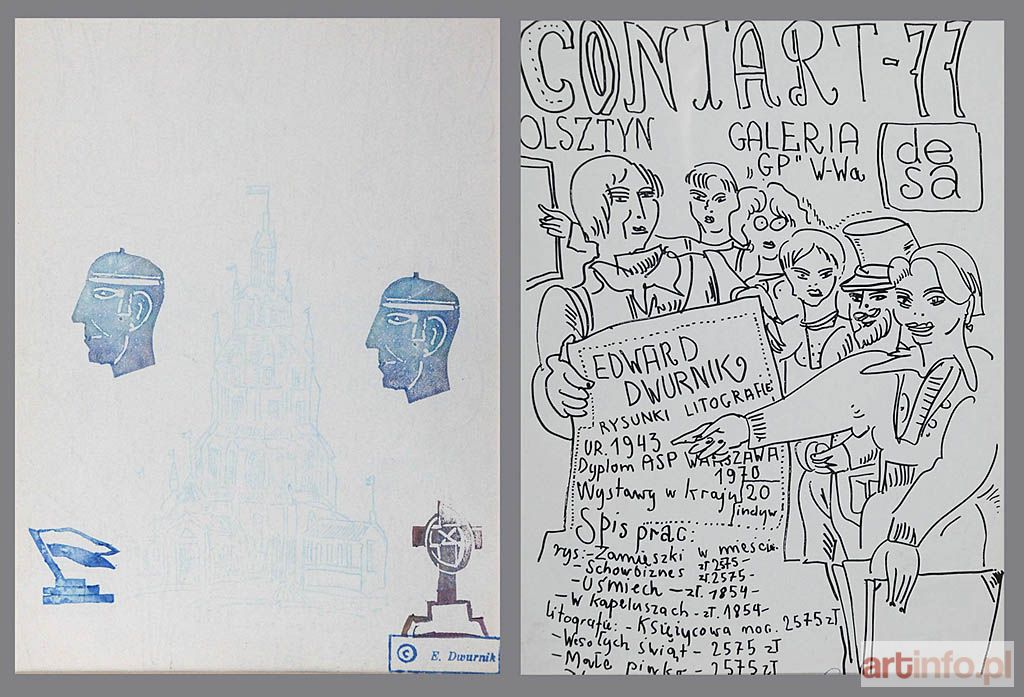 © E. Dwurnik
CONTART-77
OLSZTYN
GALERIA
„GP" W-Wa
de
sa
EDWARD
DWURNIK
RYSUNKI LITOGRAFIE
UR. 1943
Dyplom ASP WARSZAWA
1970
Wystawy w kraju 20
indyw.
Spis prac:
rys.- Zamieszki w mieście.
zł 2575-
- Schowbiznes zł. 2575-
- Uśmiech - zł. 1854-
- W kapeluszach - zł. 1854-
litografie: - Księżycowa noc. 2575 zł
- Wesołych świąt - 2575 zł
- Małe - 2575 zł
artinfo.pl